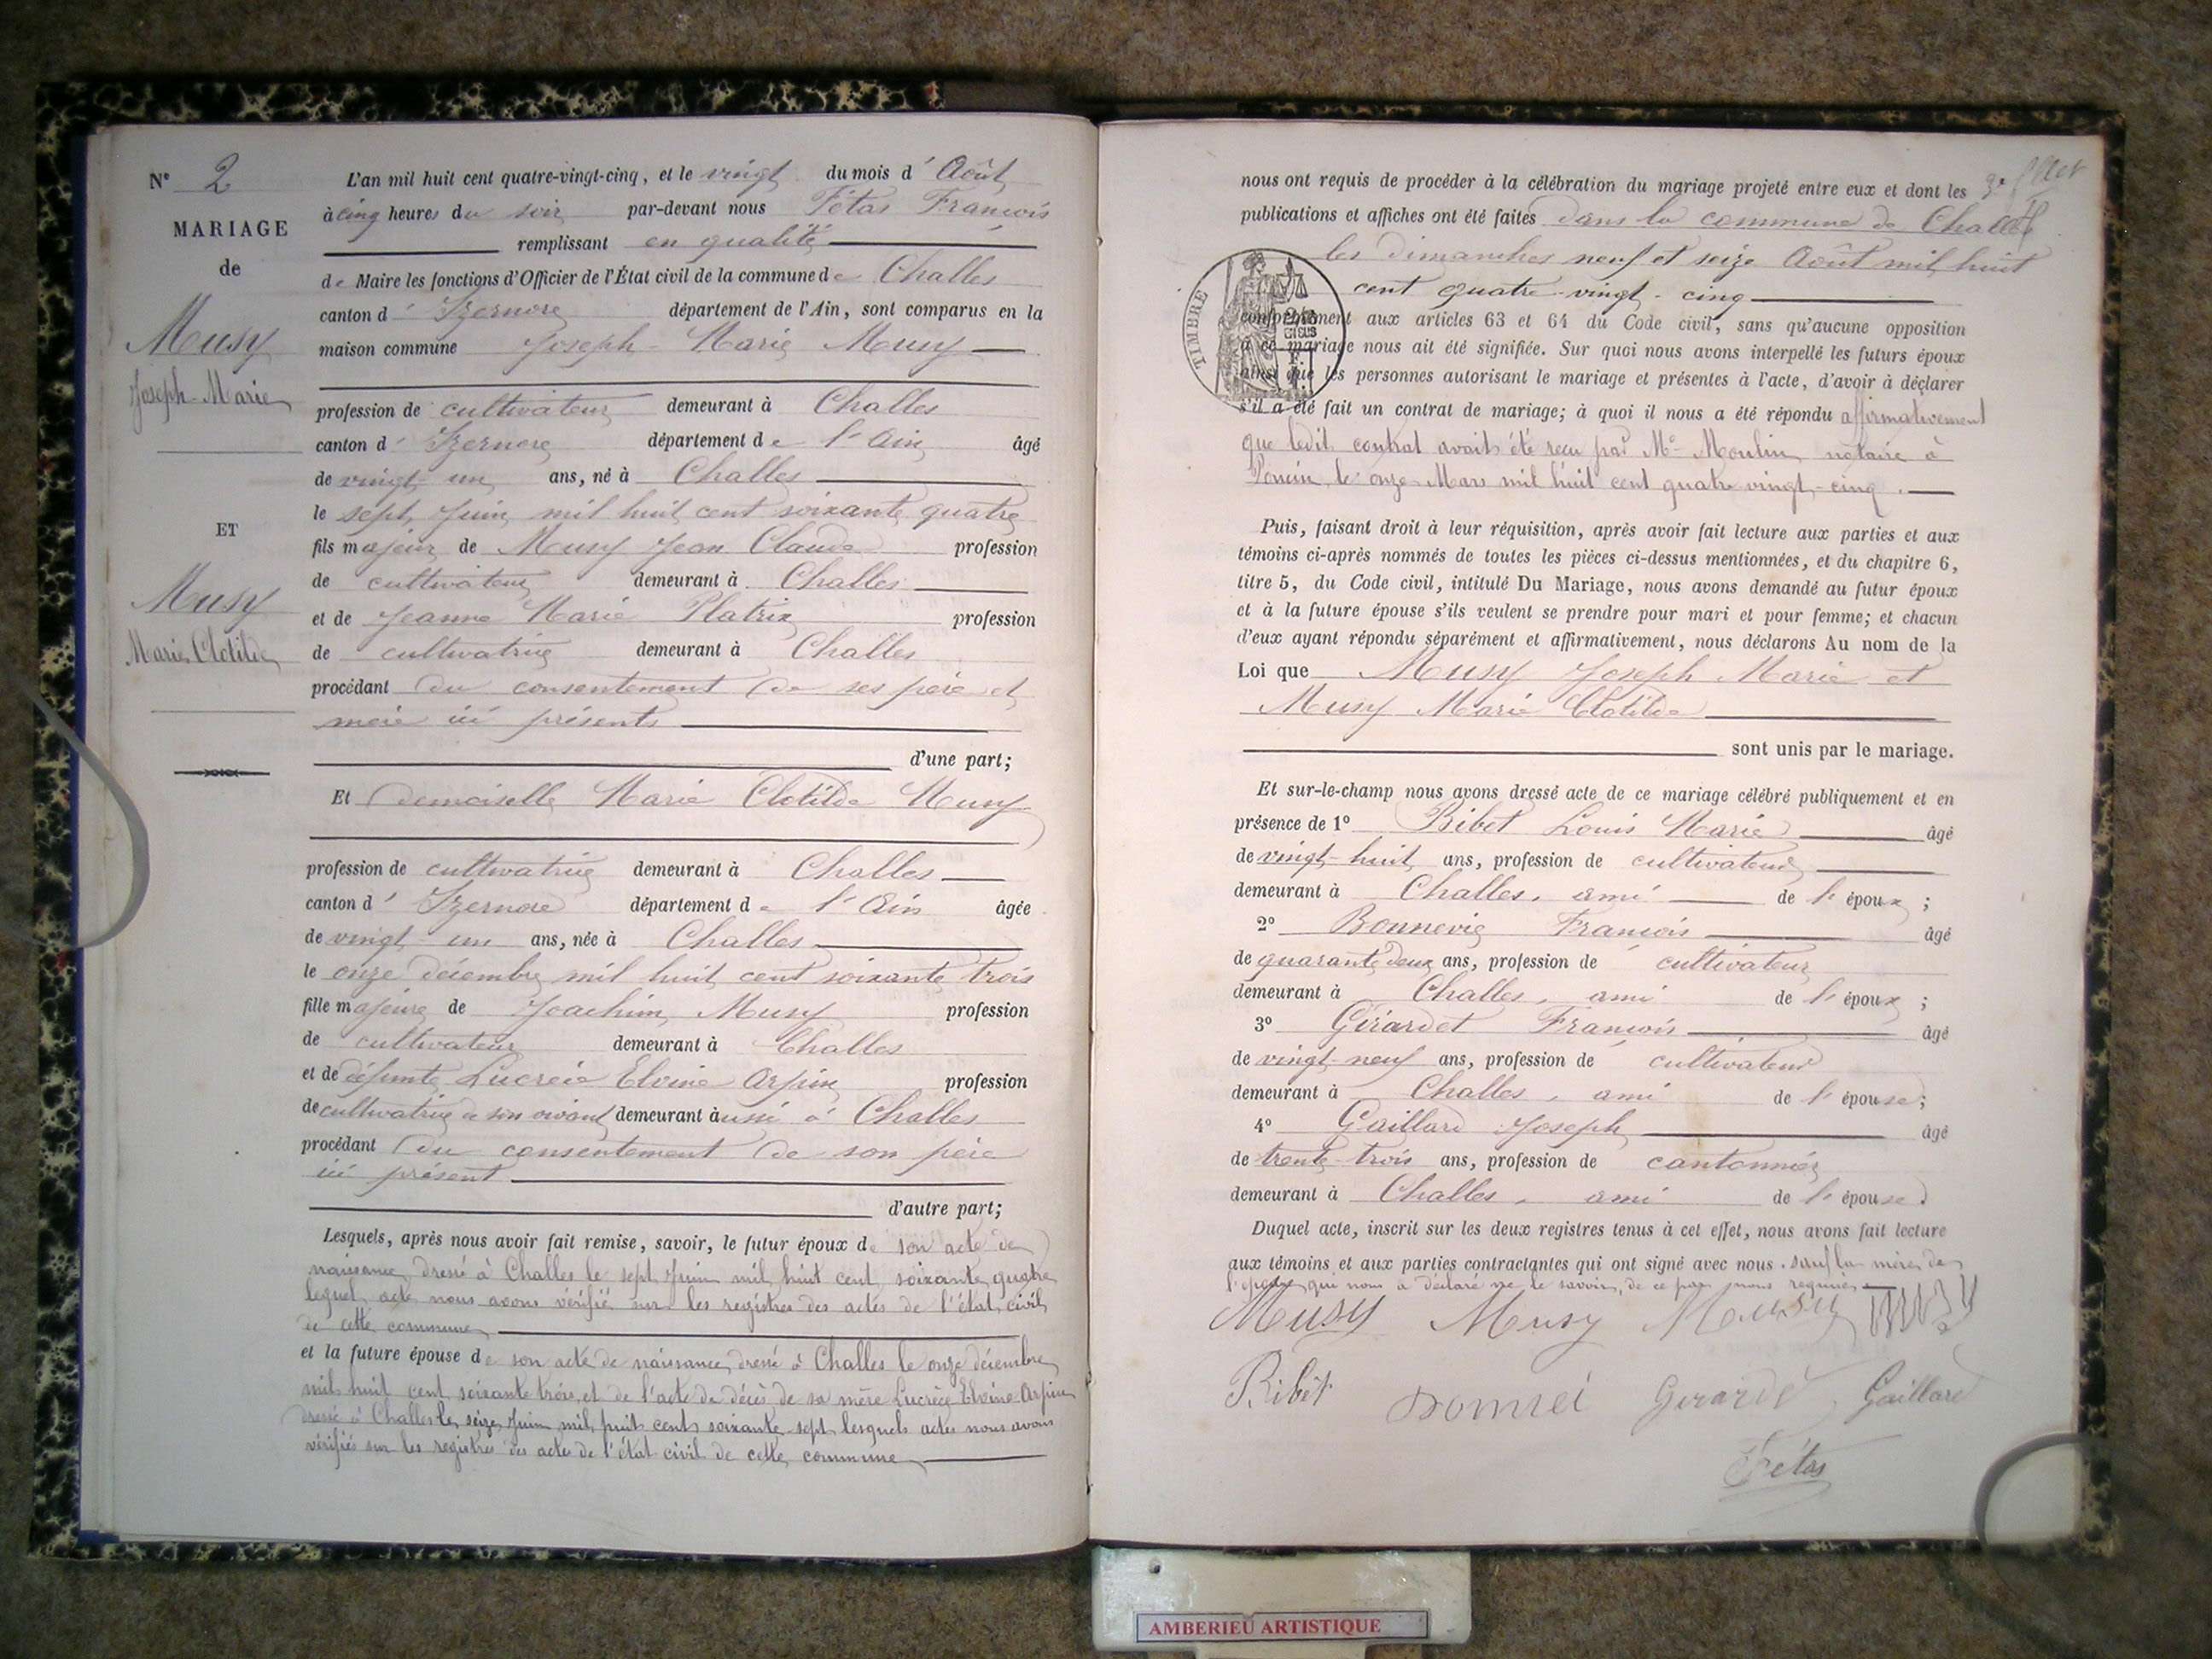 N° 2
MARIAGE
de
Musy
Joseph-Marie
ET
Musy
Marie Clotilde
L'an mil huit cent quatre-vingt-cinq, et le vingt du mois d'Août
à cinq heures du soir par-devant nous Fétas François
remplissant en qualité
de Maire les fonctions d'Officier de l'État civil de la commune de Challes
canton d'Izernore département de l'Ain, sont comparus en la
maison commune Joseph-Marie Musy
profession de cultivateur demeurant à Challes
canton d'Izernore département de l'Ain âgé
de vingt-un ans, né à Challes
le sept Juin mil huit cent soixante quatre
fils majeur de Musy Jean Claude profession
de cultivateur demeurant à Challes
et de Jeanne Marie Platrix profession
de cultivatrice demeurant à Challes
procédant du consentement de ses père et
mère ici présents
d'une part;
Et demoiselle Marie Clotilde Musy
profession de cultivatrice demeurant à Challes
canton d'Izernore département de l'Ain âgée
de vingt-un ans, née à Challes
le onze décembre mil huit cent soixante trois
fille majeure de Joachim Musy profession
de cultivateur demeurant à Challes
et de défunte Lucrèce Elvine Arpin profession
de cultivatrice de son vivant demeurant aussi à Challes
procédant du consentement de son père
ici présent
d'autre part;
Lesquels, après nous avoir fait remise, savoir, le futur époux de son acte de
naissance dressé à Challes le sept Juin mil huit cent soixante quatre
lequel acte nous avons vérifié sur les registres des actes de l'état civil
de cette commune
et la future épouse de son acte de naissance, dressé à Challes le onze décembre
mil huit cent soixante trois, et de l'acte de décès de sa mère Lucrèce Elvine Arpin
dressé à Challes le seize Juin mil huit cent soixante-sept lesquels actes nous avons
vérifiés sur les registres des actes de l'état civil de cette commune
3e
nous ont requis de procéder à la célébration du mariage projeté entre eux et dont les
publications et affiches ont été faites dans la commune de Challes
les dimanches neuf et seize Août mil huit
cent quatre-vingt-cinq
TIMBRE
conformément aux articles 63 et 64 du Code civil, sans qu'aucune opposition
à ce mariage nous ait été signifiée. Sur quoi nous avons interpellé les futurs époux
ainsi que les personnes autorisant le mariage et présentes à l'acte, d'avoir à déclarer
s'il a été fait un contrat de mariage; à quoi il nous a été répondu affirmativement
que ledit contrat avait été reçu par Me Moulin notaire à
Poncin le onze Mars mil huit cent quatre vingt-cinq.
Puis, faisant droit à leur réquisition, après avoir fait lecture aux parties et aux
témoins ci-après nommés de toutes les pièces ci-dessus mentionnées, et du chapitre 6,
titre 5, du Code civil, intitulé Du Mariage, nous avons demandé au futur époux
et à la future épouse s'ils veulent se prendre pour mari et pour femme; et chacun
d'eux ayant répondu séparément et affirmativement, nous déclarons Au nom de la
Loi que Musy Joseph Marie et
Musy Marie Clotilde
sont unis par le mariage.
Et sur-le-champ nous avons dressé acte de ce mariage célébré publiquement et en
présence de 1° Ribot Louis Marie âgé
de vingt-huit ans, profession de cultivateur
demeurant à Challes, ami de l'époux;
2° Bonnevie François âgé
de quarante deux ans, profession de cultivateur
demeurant à Challes, ami de l'époux;
3° Girardet François âgé
de vingt-neuf ans, profession de cultivateur
demeurant à Challes, ami de l'épouse;
4° Gaillard Joseph âgé
de trente-trois ans, profession de cantonnier
demeurant à Challes, ami de l'épouse.
Duquel acte, inscrit sur les deux registres tenus à cet effet, nous avons fait lecture
aux témoins et aux parties contractantes qui ont signé avec nous. sauf la mère de
l'époux qui nous a déclaré ne le savoir, de ce par nous requise
Musy Musy Musy Musy
Ribôt Girarde Gaillard
Fétas
AMBERIEU ARTISTIQUE